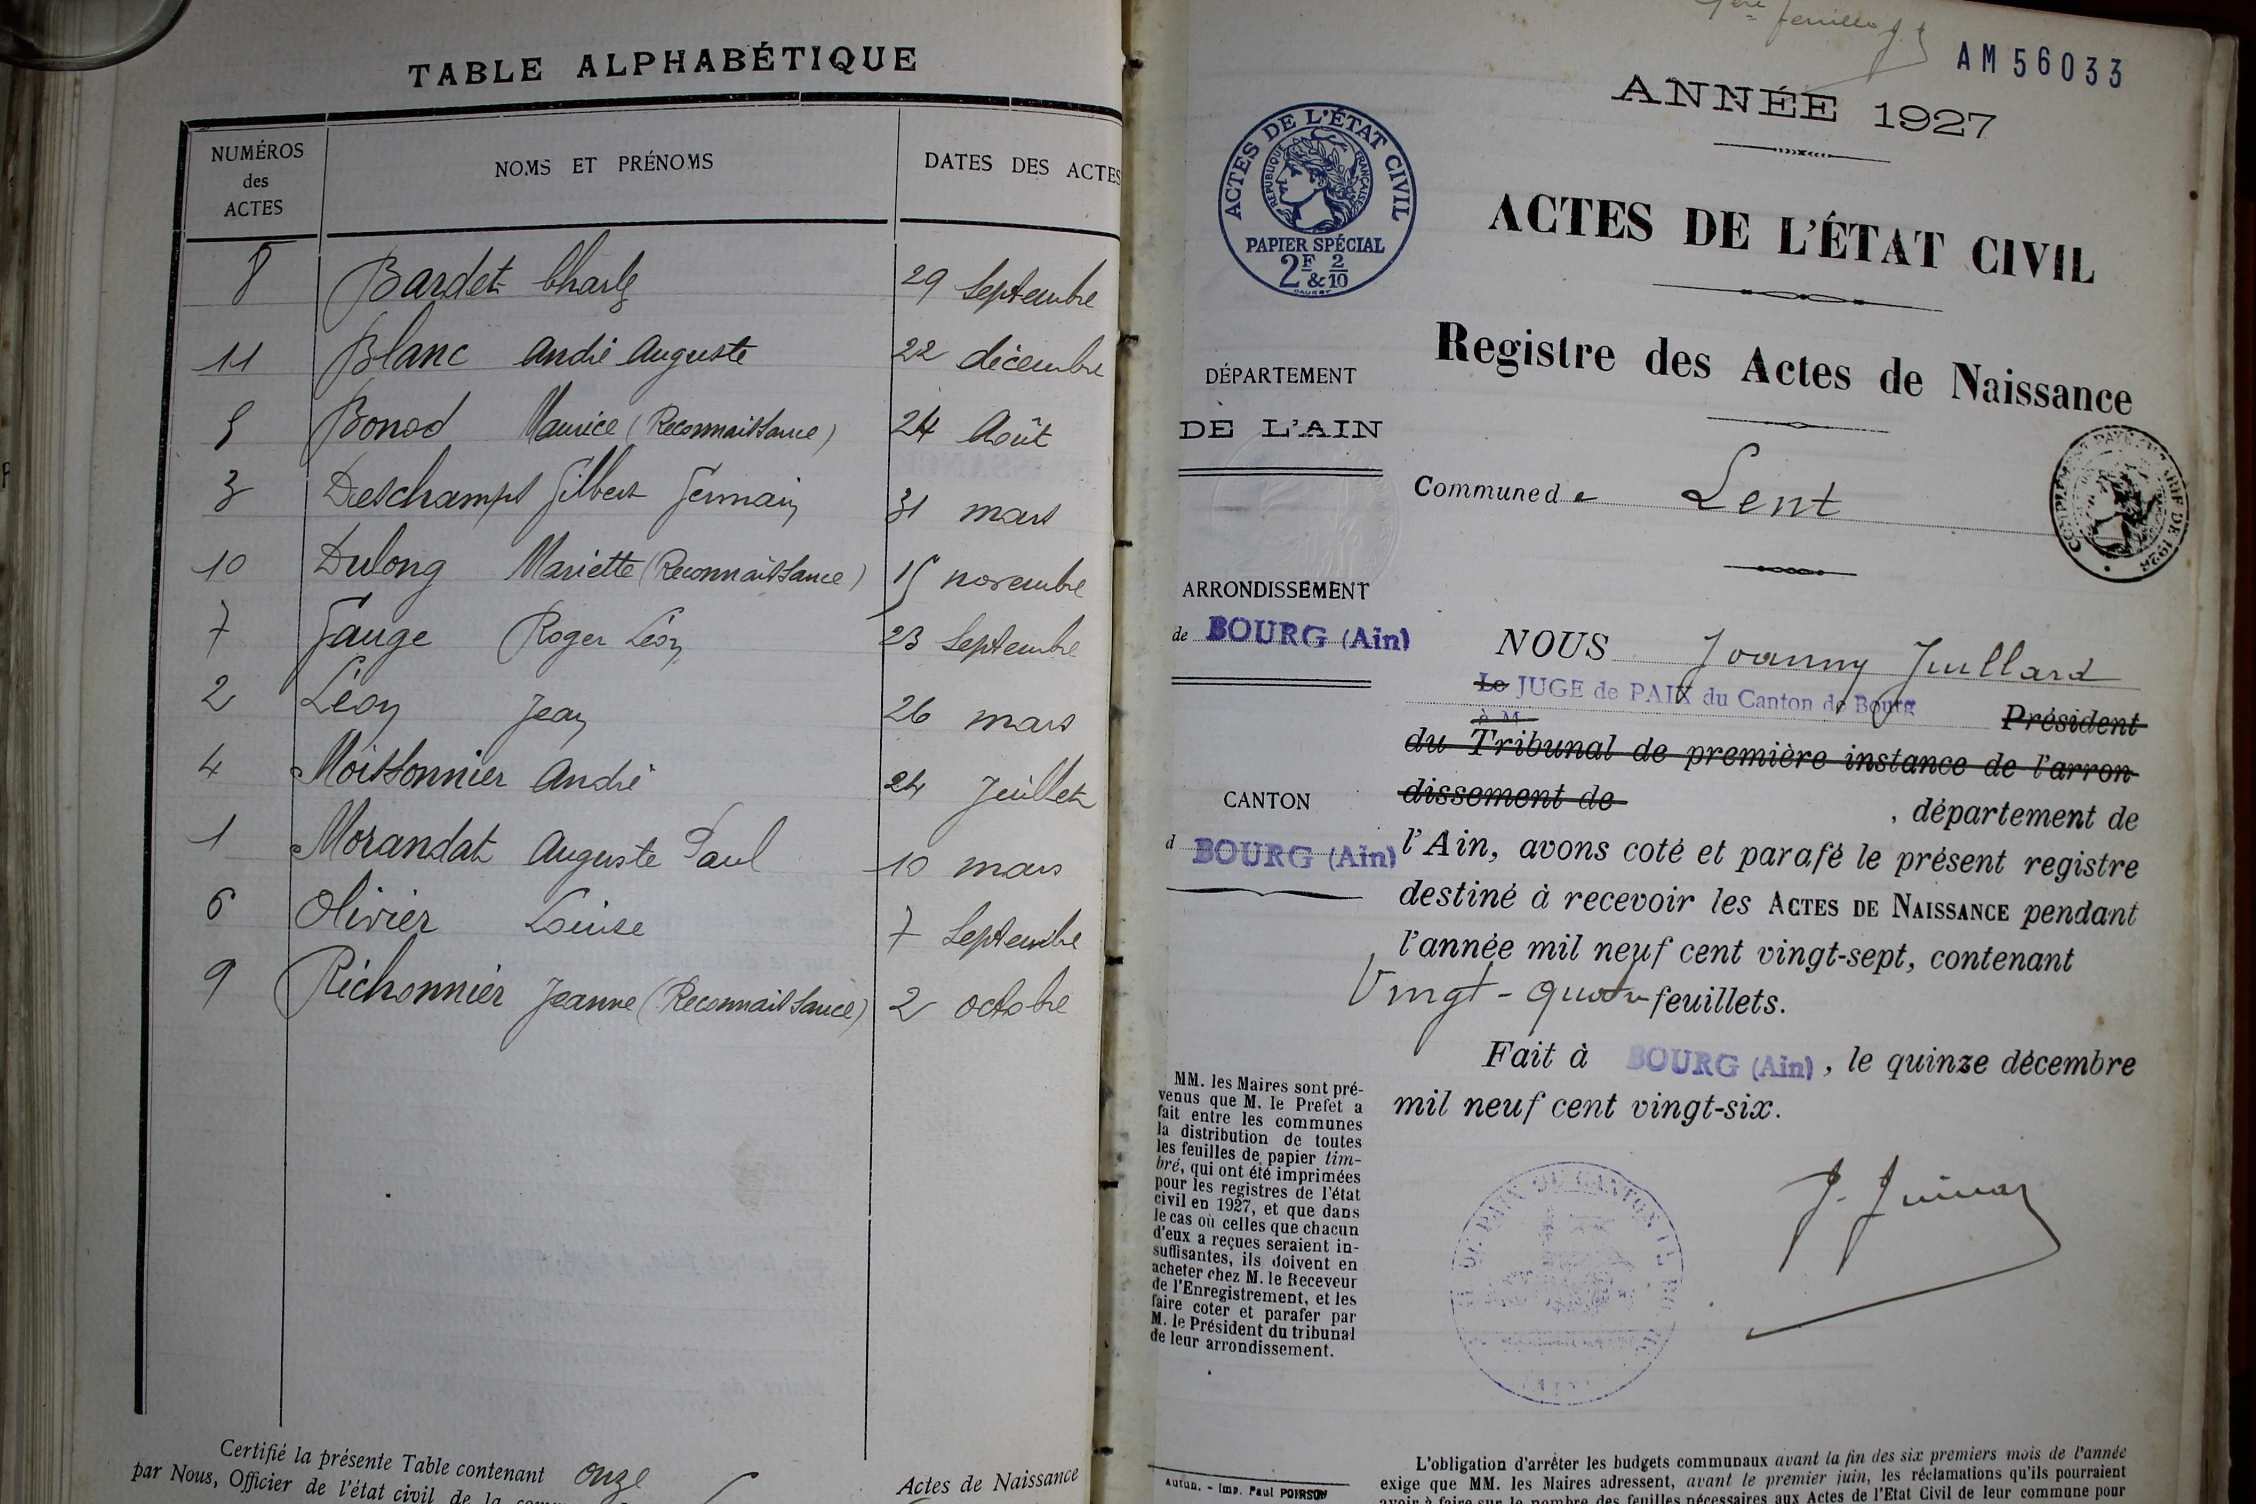 TABLE ALPHABÉTIQUE
NUMÉROS
des
ACTES
NOMS ET PRÉNOMS
DATES DES ACTES
8 Bardet Charles 29 Septembre
11 Blanc André Auguste 22 décembre
5 Bonod Maurice (Reconnaissance) 24 Août
3 Deschamps Gilbert Germain 31 mars
10 Dulong Mariette (Reconnaissance) 15 novembre
7 Gauge Roger Léon 23 Septembre
2 Léon Jean 26 mars
4 Moissonnier André 24 Juillet
1 Morandat Auguste Paul 10 mars
6 Olivier Louise 7 Septembre
9 Richonnier Jeanne (Reconnaissance) 2 octobre
Certifié la présente Table contenant onze Actes de Naissance
par Nous, Officier de l'état civil de la
AM56033
ANNÉE 1927
ACTES DE L'ÉTAT CIVIL
RÉPUBLIQUE FRANÇAISE
PAPIER SPÉCIAL
2F & 2/10
ACTES DE L'ÉTAT CIVIL
Registre des Actes de Naissance
DÉPARTEMENT
DE L'AIN
Commune de Lent
COMPLÉMENT PAYÉ TARIF DE 1926
ARRONDISSEMENT
de BOURG (Ain)
CANTON
d BOURG (Ain)
NOUS Joanny Juillard
Le JUGE de PAIX du Canton de Bourg
à M
Président
du Tribunal de première instance de l'arron
dissement de , département de
l'Ain, avons coté et parafé le présent registre
destiné à recevoir les ACTES DE NAISSANCE pendant
l'année mil neuf cent vingt-sept, contenant
Vingt-quatre feuillets.
Fait à BOURG (Ain), le quinze décembre
mil neuf cent vingt-six.
MM. les Maires sont pré-
venus que M. le Prefet a
fait entre les communes
la distribution de toutes
les feuilles de papier tim-
bré, qui ont été imprimées
pour les registres de l'état
civil en 1927, et que dans
le cas où celles que chacun
d'eux a reçues seraient in-
suffisantes, ils doivent en
acheter chez M. le Receveur
de l'Enregistrement, et les
faire coter et parafer par
M. le Président du tribunal
de leur arrondissement.
Autun. - Imp. Paul POIRSON
L'obligation d'arrêter les budgets communaux avant la fin des six premiers mois de l'année
exige que MM. les Maires adressent, avant le premier juin, les réclamations qu'ils pourraient
avoir à faire sur le nombre des feuilles nécessaires aux Actes de l'Etat Civil de leur commune pour